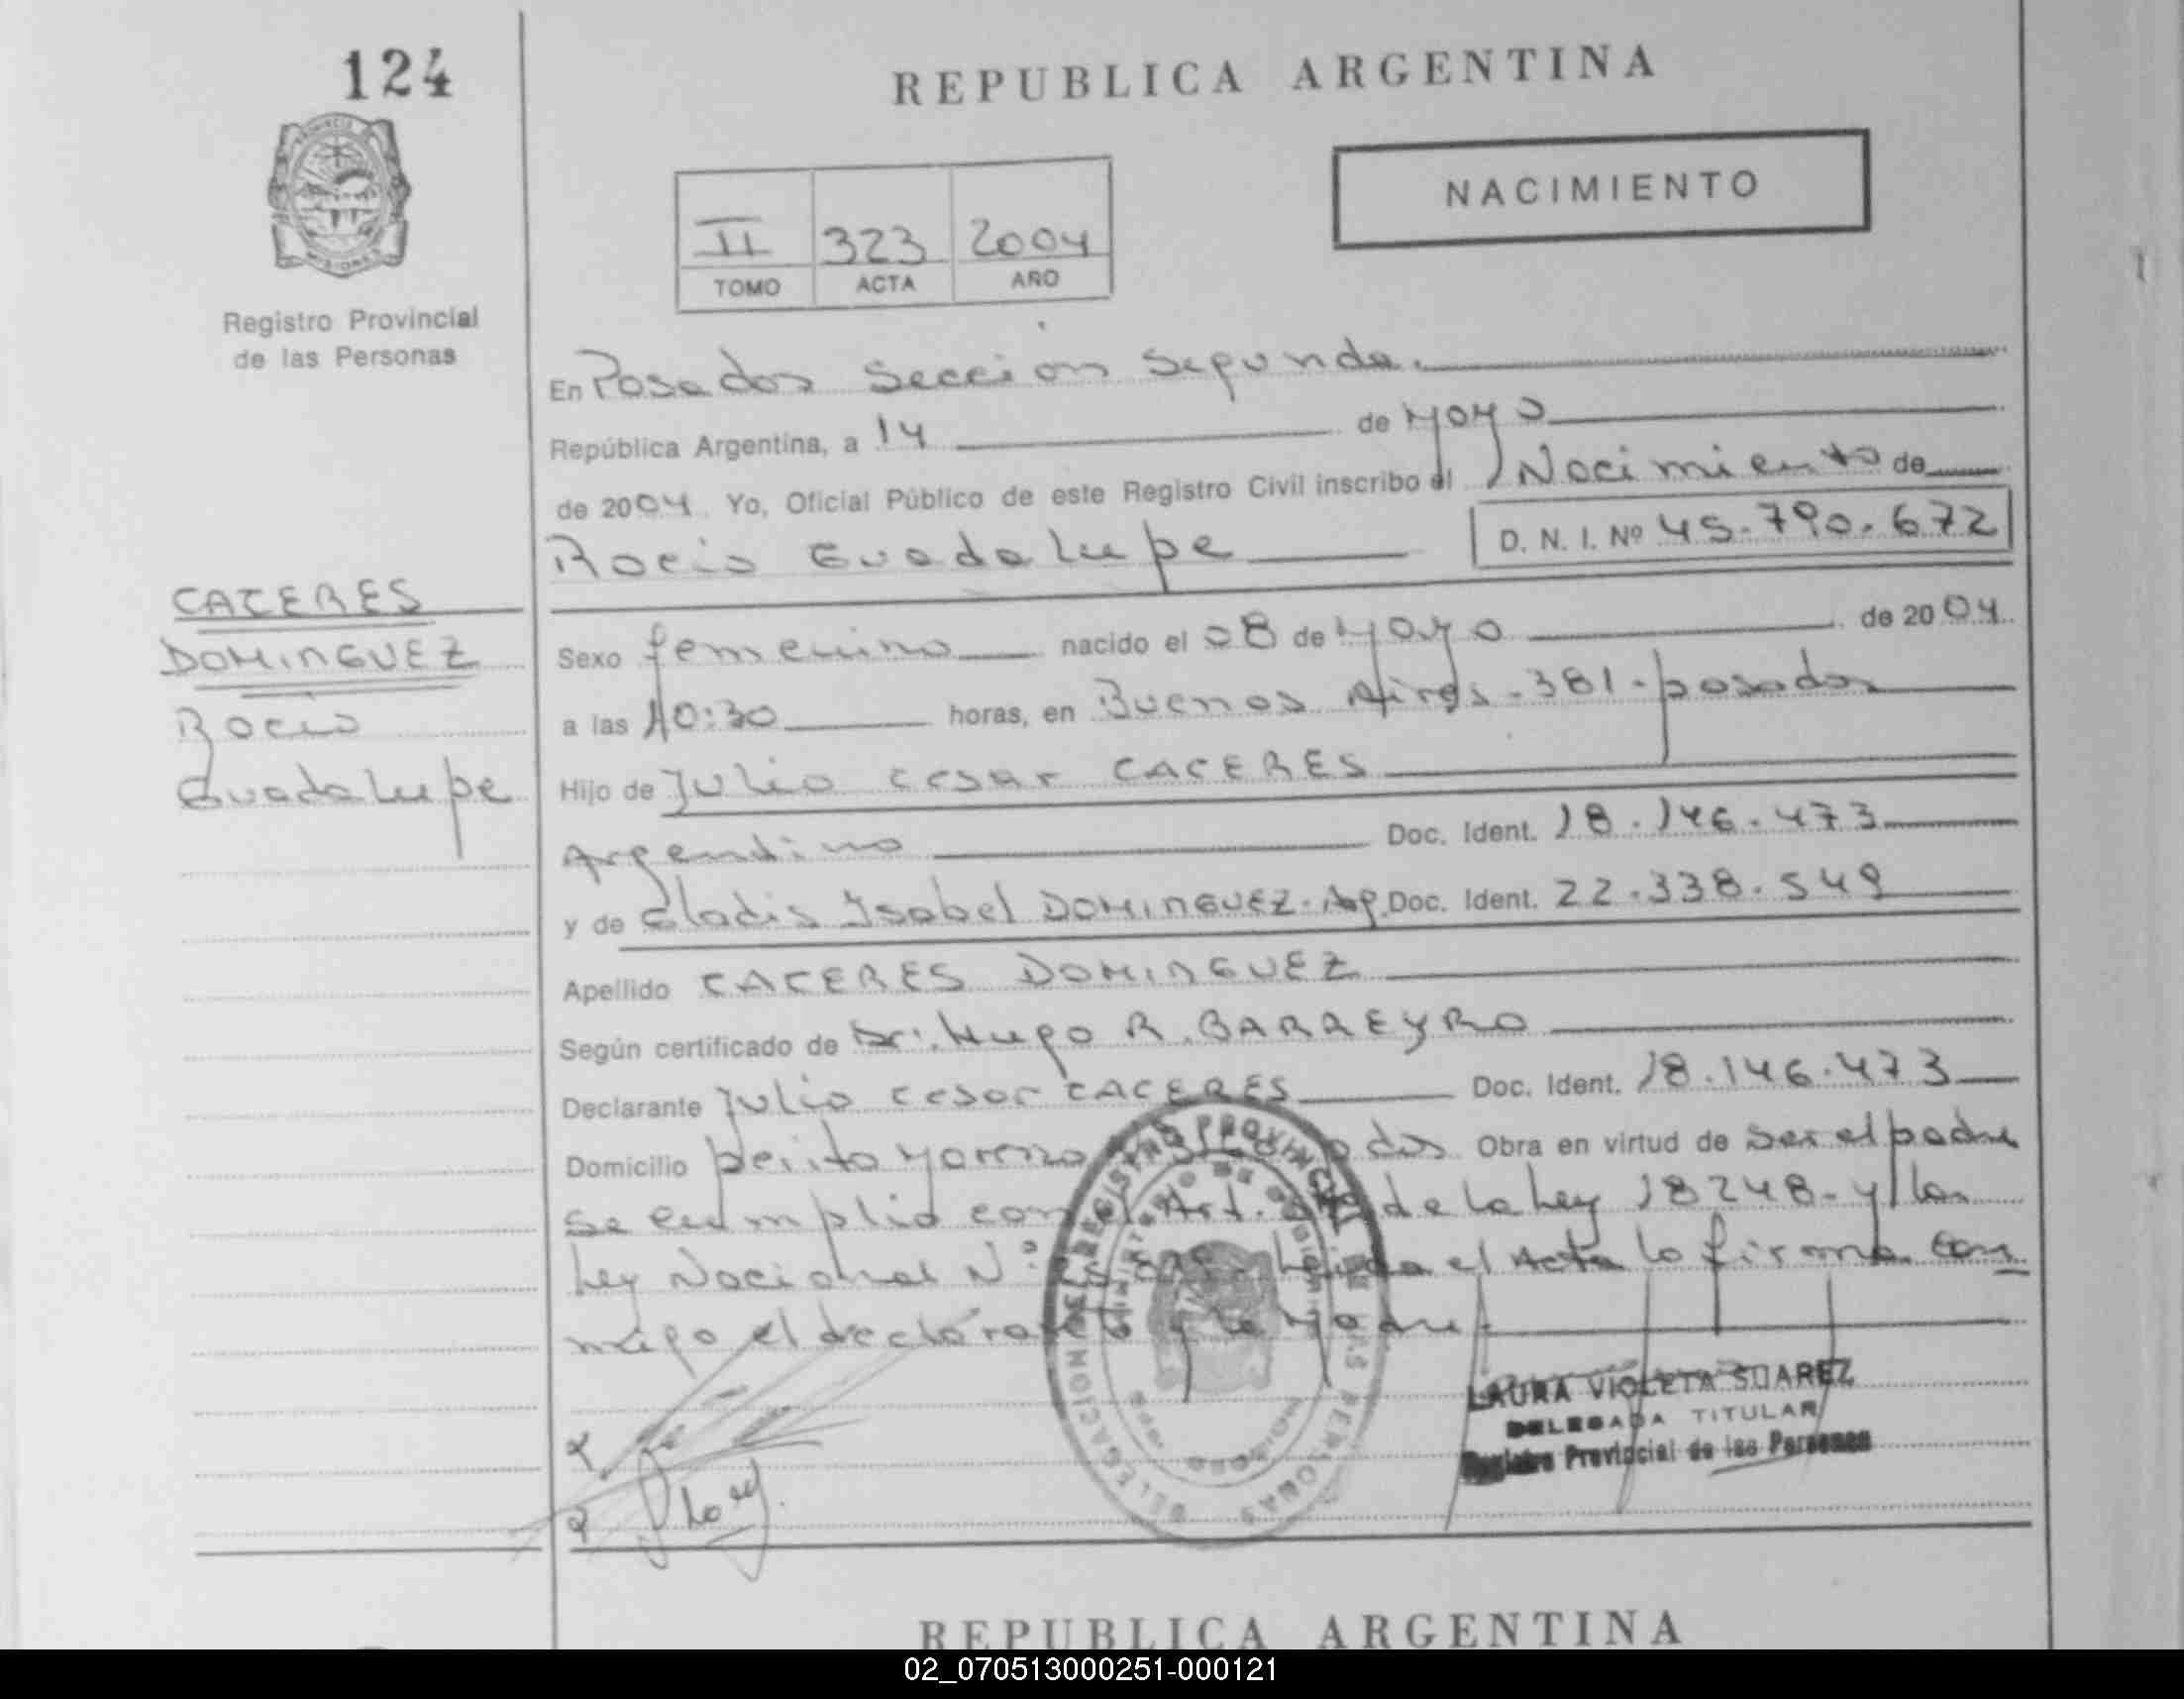 124
REPUBLICA ARGENTINA
NACIMIENTO
PROVINCIA
MISIONES
Registro Provincial
de las Personas
II 323 2004
TOMO ACTA AÑO
En Posadas Sección Segunda.
República Argentina, a 14 de Mayo
de 2004. Yo, Oficial Público de este Registro Civil inscribo el Nacimiento de
Rocio Guadalupe D. N. I. Nº 45.790.672
CACERES
DOMINGUEZ
Rocio
Guadalupe
Sexo femenino nacido el 08 de Mayo de 2004.
a las 10:30 horas, en Buenos Aires - 381 - posadas
Hijo de Julio Cesar CACERES
Argentino Doc. Ident. 18.146.473
y de Gladis Ysabel DOMINGUEZ - Arg. Doc. Ident. 22.338.549
Apellido CACERES DOMINGUEZ
Según certificado de Dr. Hugo R. BARREYRO
Declarante Julio Cesar CACERES Doc. Ident. 18.146.473
Domicilio perito Moreno Obra en virtud de Ser el padre
Se cumplió con el Art. de la Ley 18248 - y las
Ley Nacional Nº Leida el Acta lo firma con
migo el declarante y la Madre
LAURA VIOLETA SUAREZ
DELEGADA TITULAR
Registro Provincial de las Personas
REPUBLICA ARGENTINA
02_070513000251-000121